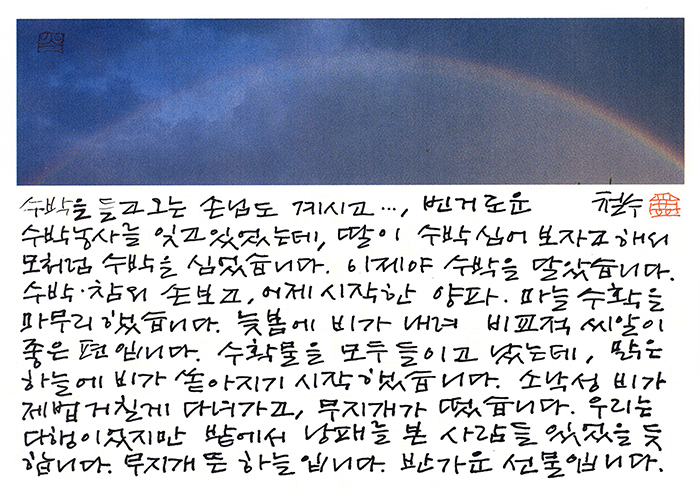 수박을 들고 오는 손님도 계시고…, 번거로운 철수
수박농사를 잊고 있었는데, 딸이 수박 심어 보자고 해서
모처럼 수박을 심었습니다. 이제야 수박을 말았습니다.
수박·참외 손보고, 어제 시작한 양파. 마늘 수확을
마무리 했습니다. 늦봄에 비가 내려 비교적 씨알이
좋은 편입니다. 수확물을 모두 들이고 났는데, 맑은
하늘에 비가 쏟아지기 시작했습니다. 소낙성 비가
제법 거칠게 다녀가고, 무지개가 떴습니다. 우리는
다행이었지만 밭에서 낭패를 본 사람들 있었을 듯
합니다. 무지개 뜬 하늘입니다. 반가운 선물입니다.